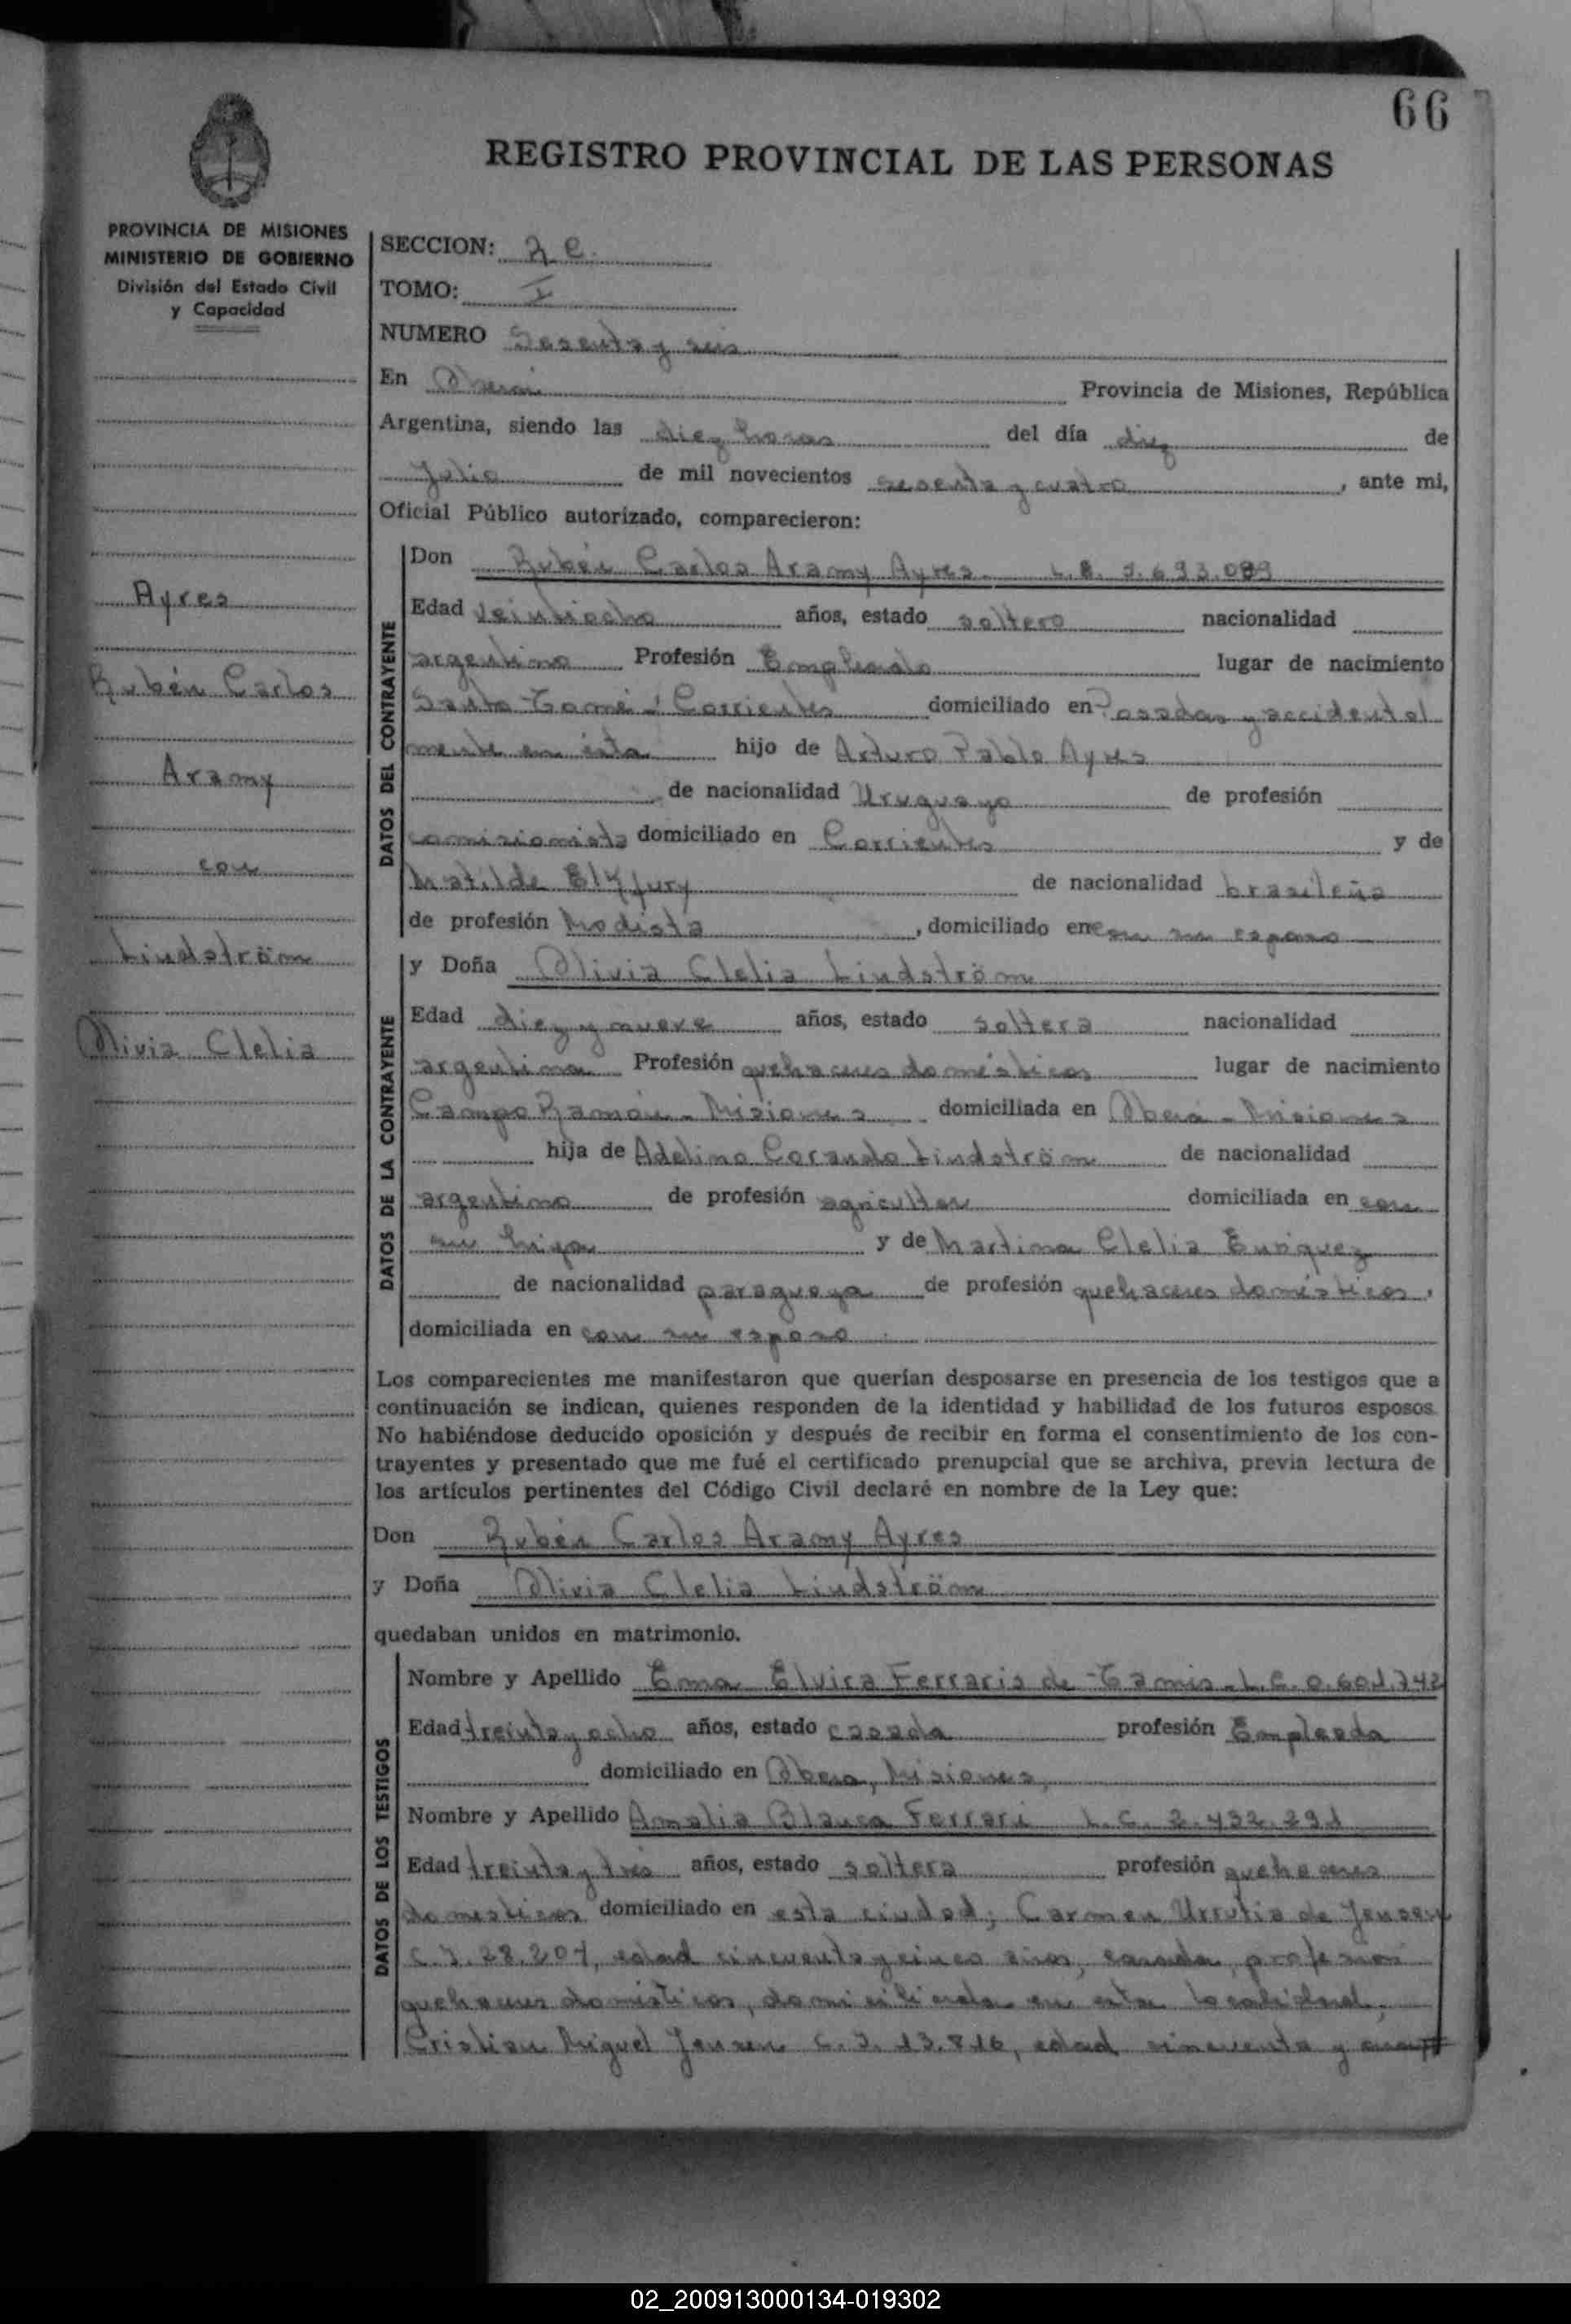 66
REGISTRO PROVINCIAL DE LAS PERSONAS
PROVINCIA DE MISIONES
MINISTERIO DE GOBIERNO
División del Estado Civil
y Capacidad
Ayres
Rubén Carlos
Aramy
con
Lindström
Olivia Clelia
SECCION:
TOMO: I
NUMERO Sesenta y seis
En Oberá Provincia de Misiones, República
Argentina, siendo las diez horas del día diez de
Julio de mil novecientos sesenta y cuatro, ante mi,
Oficial Público autorizado, comparecieron:
DATOS DEL CONTRAYENTE
Don Rubén Carlos Aramy Ayres L.E.
Edad veintiocho años, estado soltero nacionalidad
argentino Profesión Empleado lugar de nacimiento
Santo Tomé - Corrientes domiciliado en Posadas y accidental
mente en ésta hijo de Arturo Pablo Ayres
de nacionalidad Uruguayo de profesión
comisionista domiciliado en Corrientes y de
Matilde de nacionalidad brasileña
de profesión Modista, domiciliado en con su esposo
DATOS DE LA CONTRAYENTE
y Doña Olivia Clelia Lindström
Edad diez y nueve años, estado soltera nacionalidad
argentina Profesión quehaceres domésticos lugar de nacimiento
Campo Ramón - Misiones domiciliada en Oberá - Misiones
hija de Adelino Lindström de nacionalidad
argentino de profesión agricultor domiciliada en con
su hija y de Martina Clelia Enriquez
de nacionalidad paraguaya de profesión quehaceres domésticos,
domiciliada en con su esposo
Los comparecientes me manifestaron que querían desposarse en presencia de los testigos que a
continuación se indican, quienes responden de la identidad y habilidad de los futuros esposos.
No habiéndose deducido oposición y después de recibir en forma el consentimiento de los con-
trayentes y presentado que me fué el certificado prenupcial que se archiva, previa lectura de
los artículos pertinentes del Código Civil declaré en nombre de la Ley que:
Don Rubén Carlos Aramy Ayres
y Doña Olivia Clelia Lindström
quedaban unidos en matrimonio.
DATOS DE LOS TESTIGOS
Nombre y Apellido Ema Elvira Ferraris de Tamis - L.C. 0.601.742
Edad treinta y ocho años, estado casada profesión Empleada
domiciliado en Obera, Misiones,
Nombre y Apellido Amalia Blanca Ferrari L.C. 2.432.291
Edad treinta y tres años, estado soltera profesión quehaceres
domesticos domiciliado en esta ciudad; Carmen Urrutia de Jensen
C.I. 28.207, edad cincuenta y cinco años, casada, profesion
quehaceres domésticos, domiciliada en esta localidad;
Cristian Miguel Jensen C.I. 13.816, edad cincuenta y
02_200913000134-019302